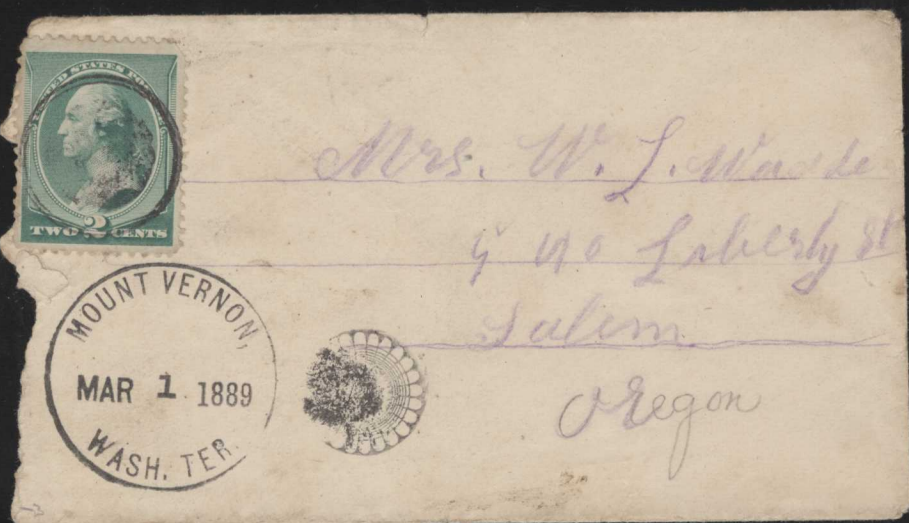 UNITED STATES POS
TWO 2 CENTS
MOUNT VERNON,
MAR 1 1889
WASH. TER.
Mrs. W. L. Wade
Liberty St
Salem
Oregon